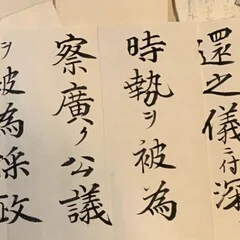 還之儀ニ付深
時勢ヲ被為
察廣ク公議
ヲ被為採政